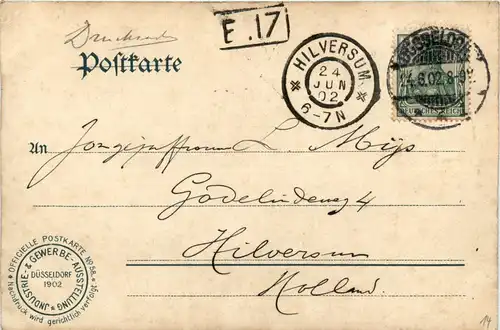 Drucksache
E.17
Postkarte
HILVERSUM
24
JUN
02
6-7N
DÜSSELDORF
24.6.02.8-9V.
DEUTSCHES REICH
An Jongejuffrouw L. Mijs
Godelindeweg 4
Hilversum
Holland.
* OFFICIELLE POSTKARTE No 58. *
Nachdruck wird gerichtlich verfolgt
INDUSTRIE- & GEWERBE-AUSSTELLUNG
DÜSSELDORF
1902